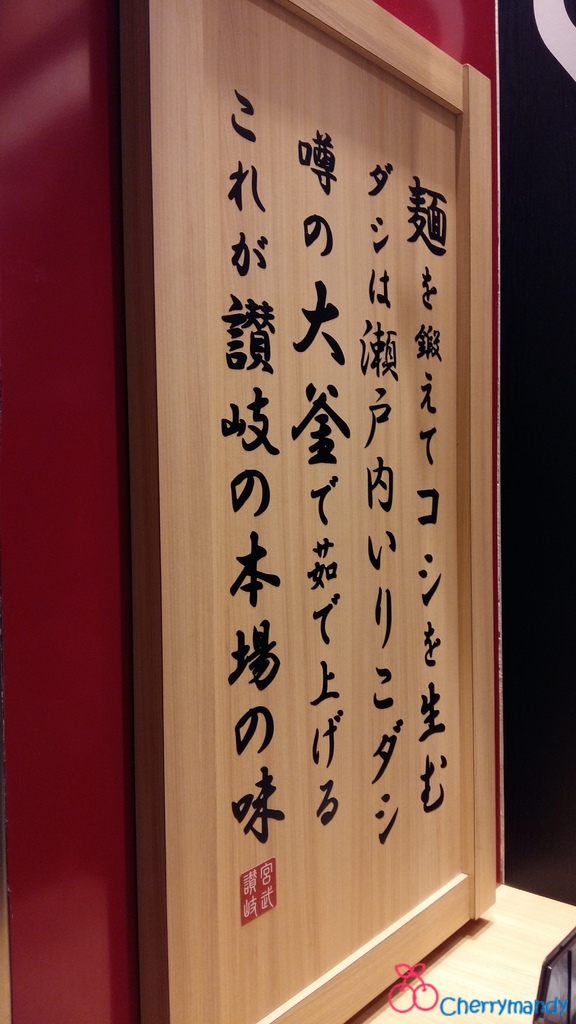 麺を鍛えてコシを生む
ダシは瀬戸内いりこダシ
噂の大釜で茹で上げる
これが讃岐の本場の味
宮武
讃岐
Cherrymandy